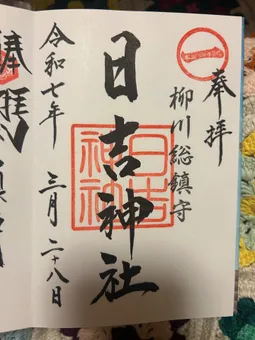 奉拝
柳川総鎮守
日吉神社
日吉神社
令和七年 三月二十八日
奉拝